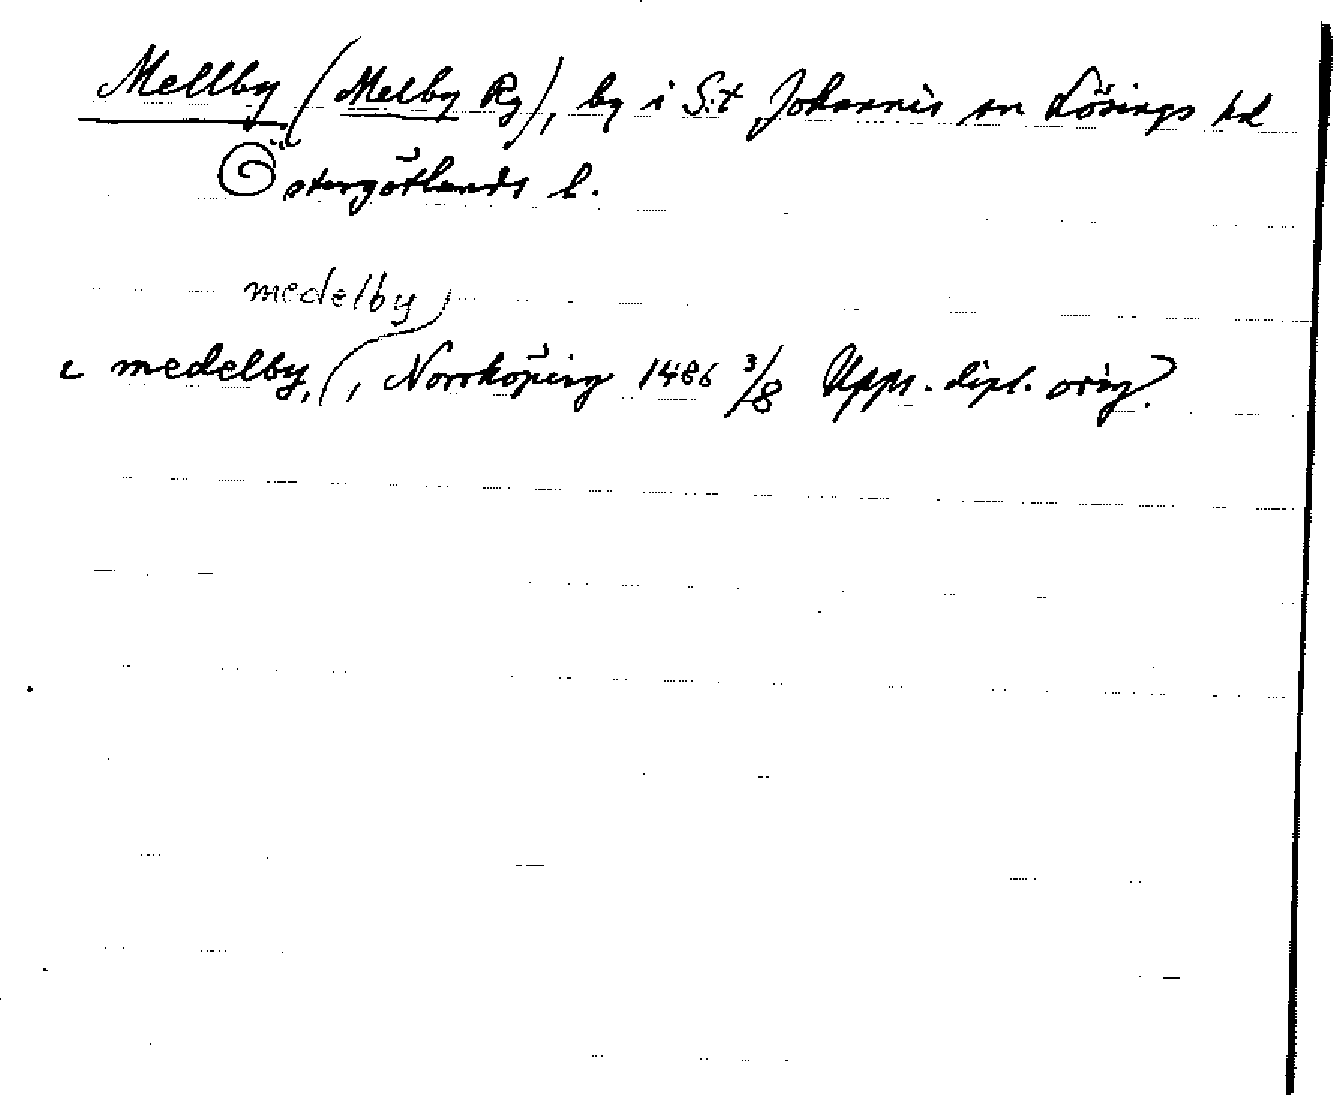 Mellby (Melby Rg), by i S:t Johannis sn Lösings hd
Östergötlands l.
medelby
i medelby, (, Norrköping 1486 3/8 Upps. dipl. orig.